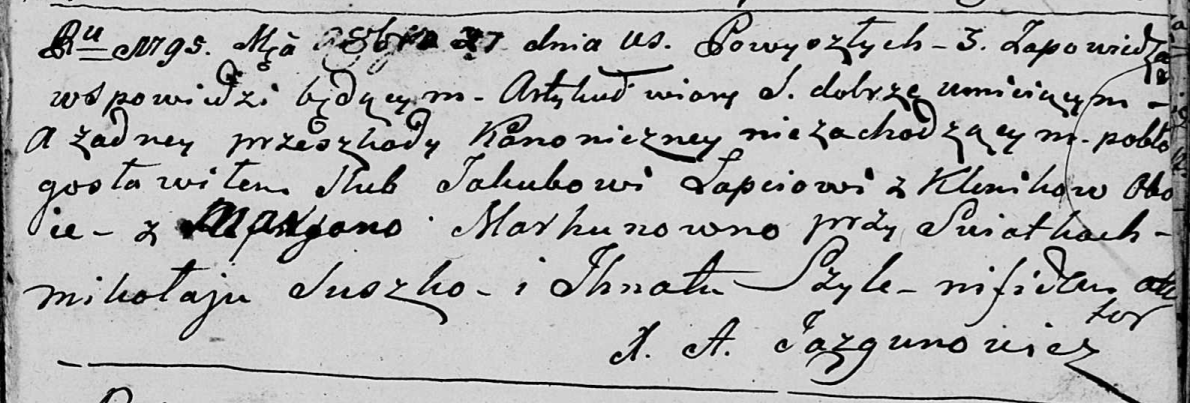 Ru 1795. Mca 8bra 27 dnia us. Powyszłych - 3. Zapowiedza
wspowiedzi będącym - Artykuł wiary S. dobrze umieiącym -
A żadney przeszkody Kanoniczney niezachodzącym - pobło
gosławiłem Slub Jakubowi Łapciowi z Klenikow Obo
ie - z Markunowno przy Swiatkach -
mikołaju Suszko - i Ihnatu Szyle -
X. A. Jazgunowicz